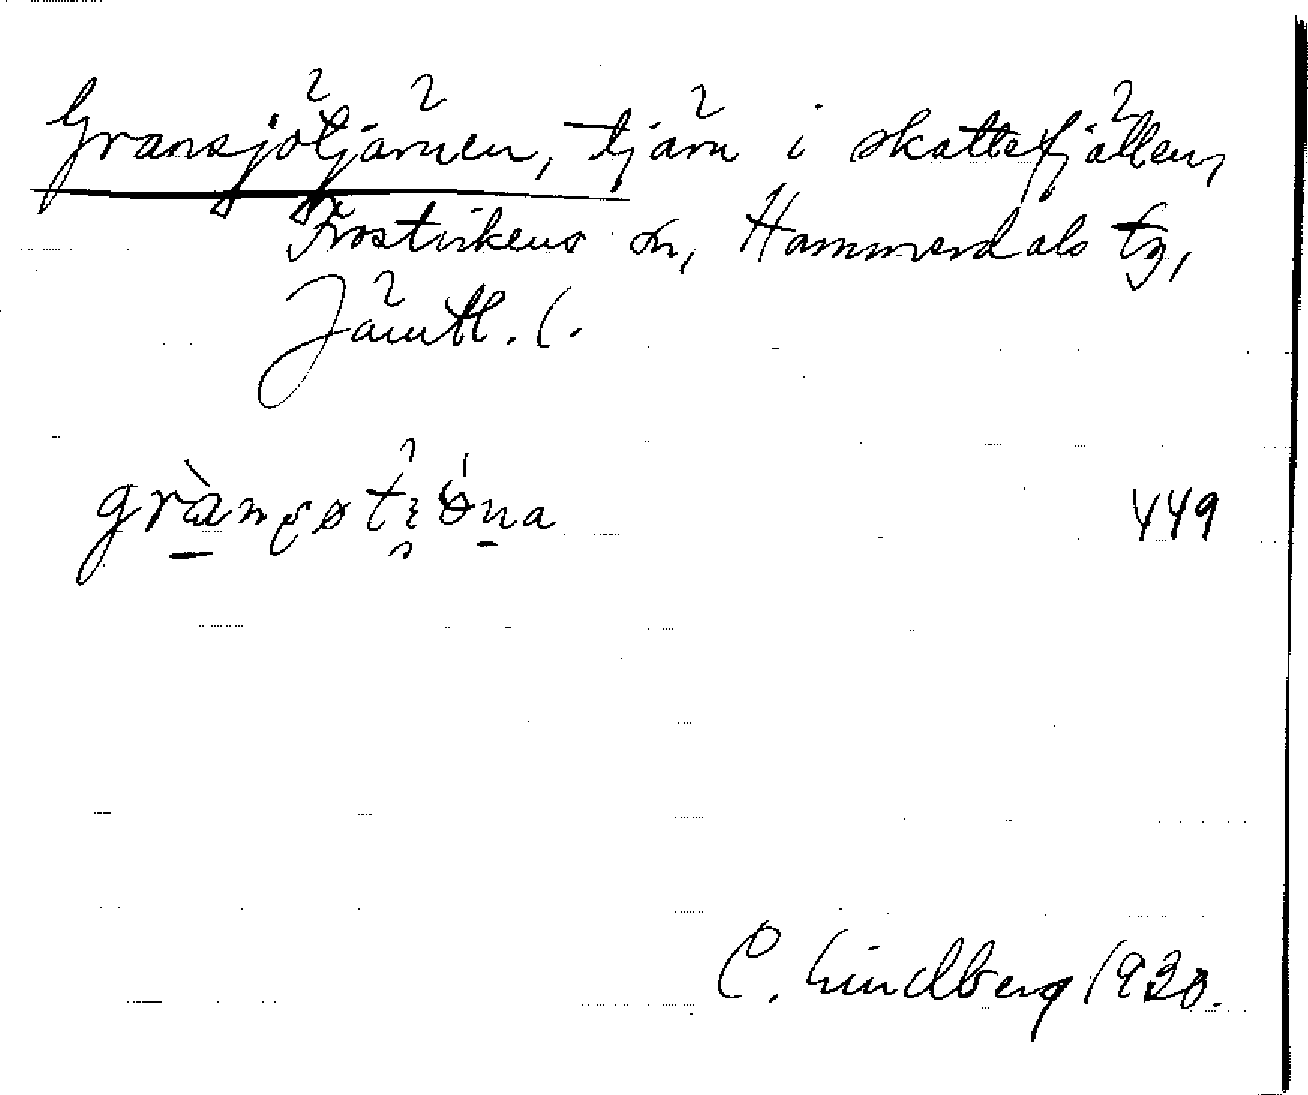 Gransjötjärnen, tjärn i skattefjällen,
Frostvikens sn, Hammerdals tg,
Jämtl. l.
449
C. Lindberg 1930.